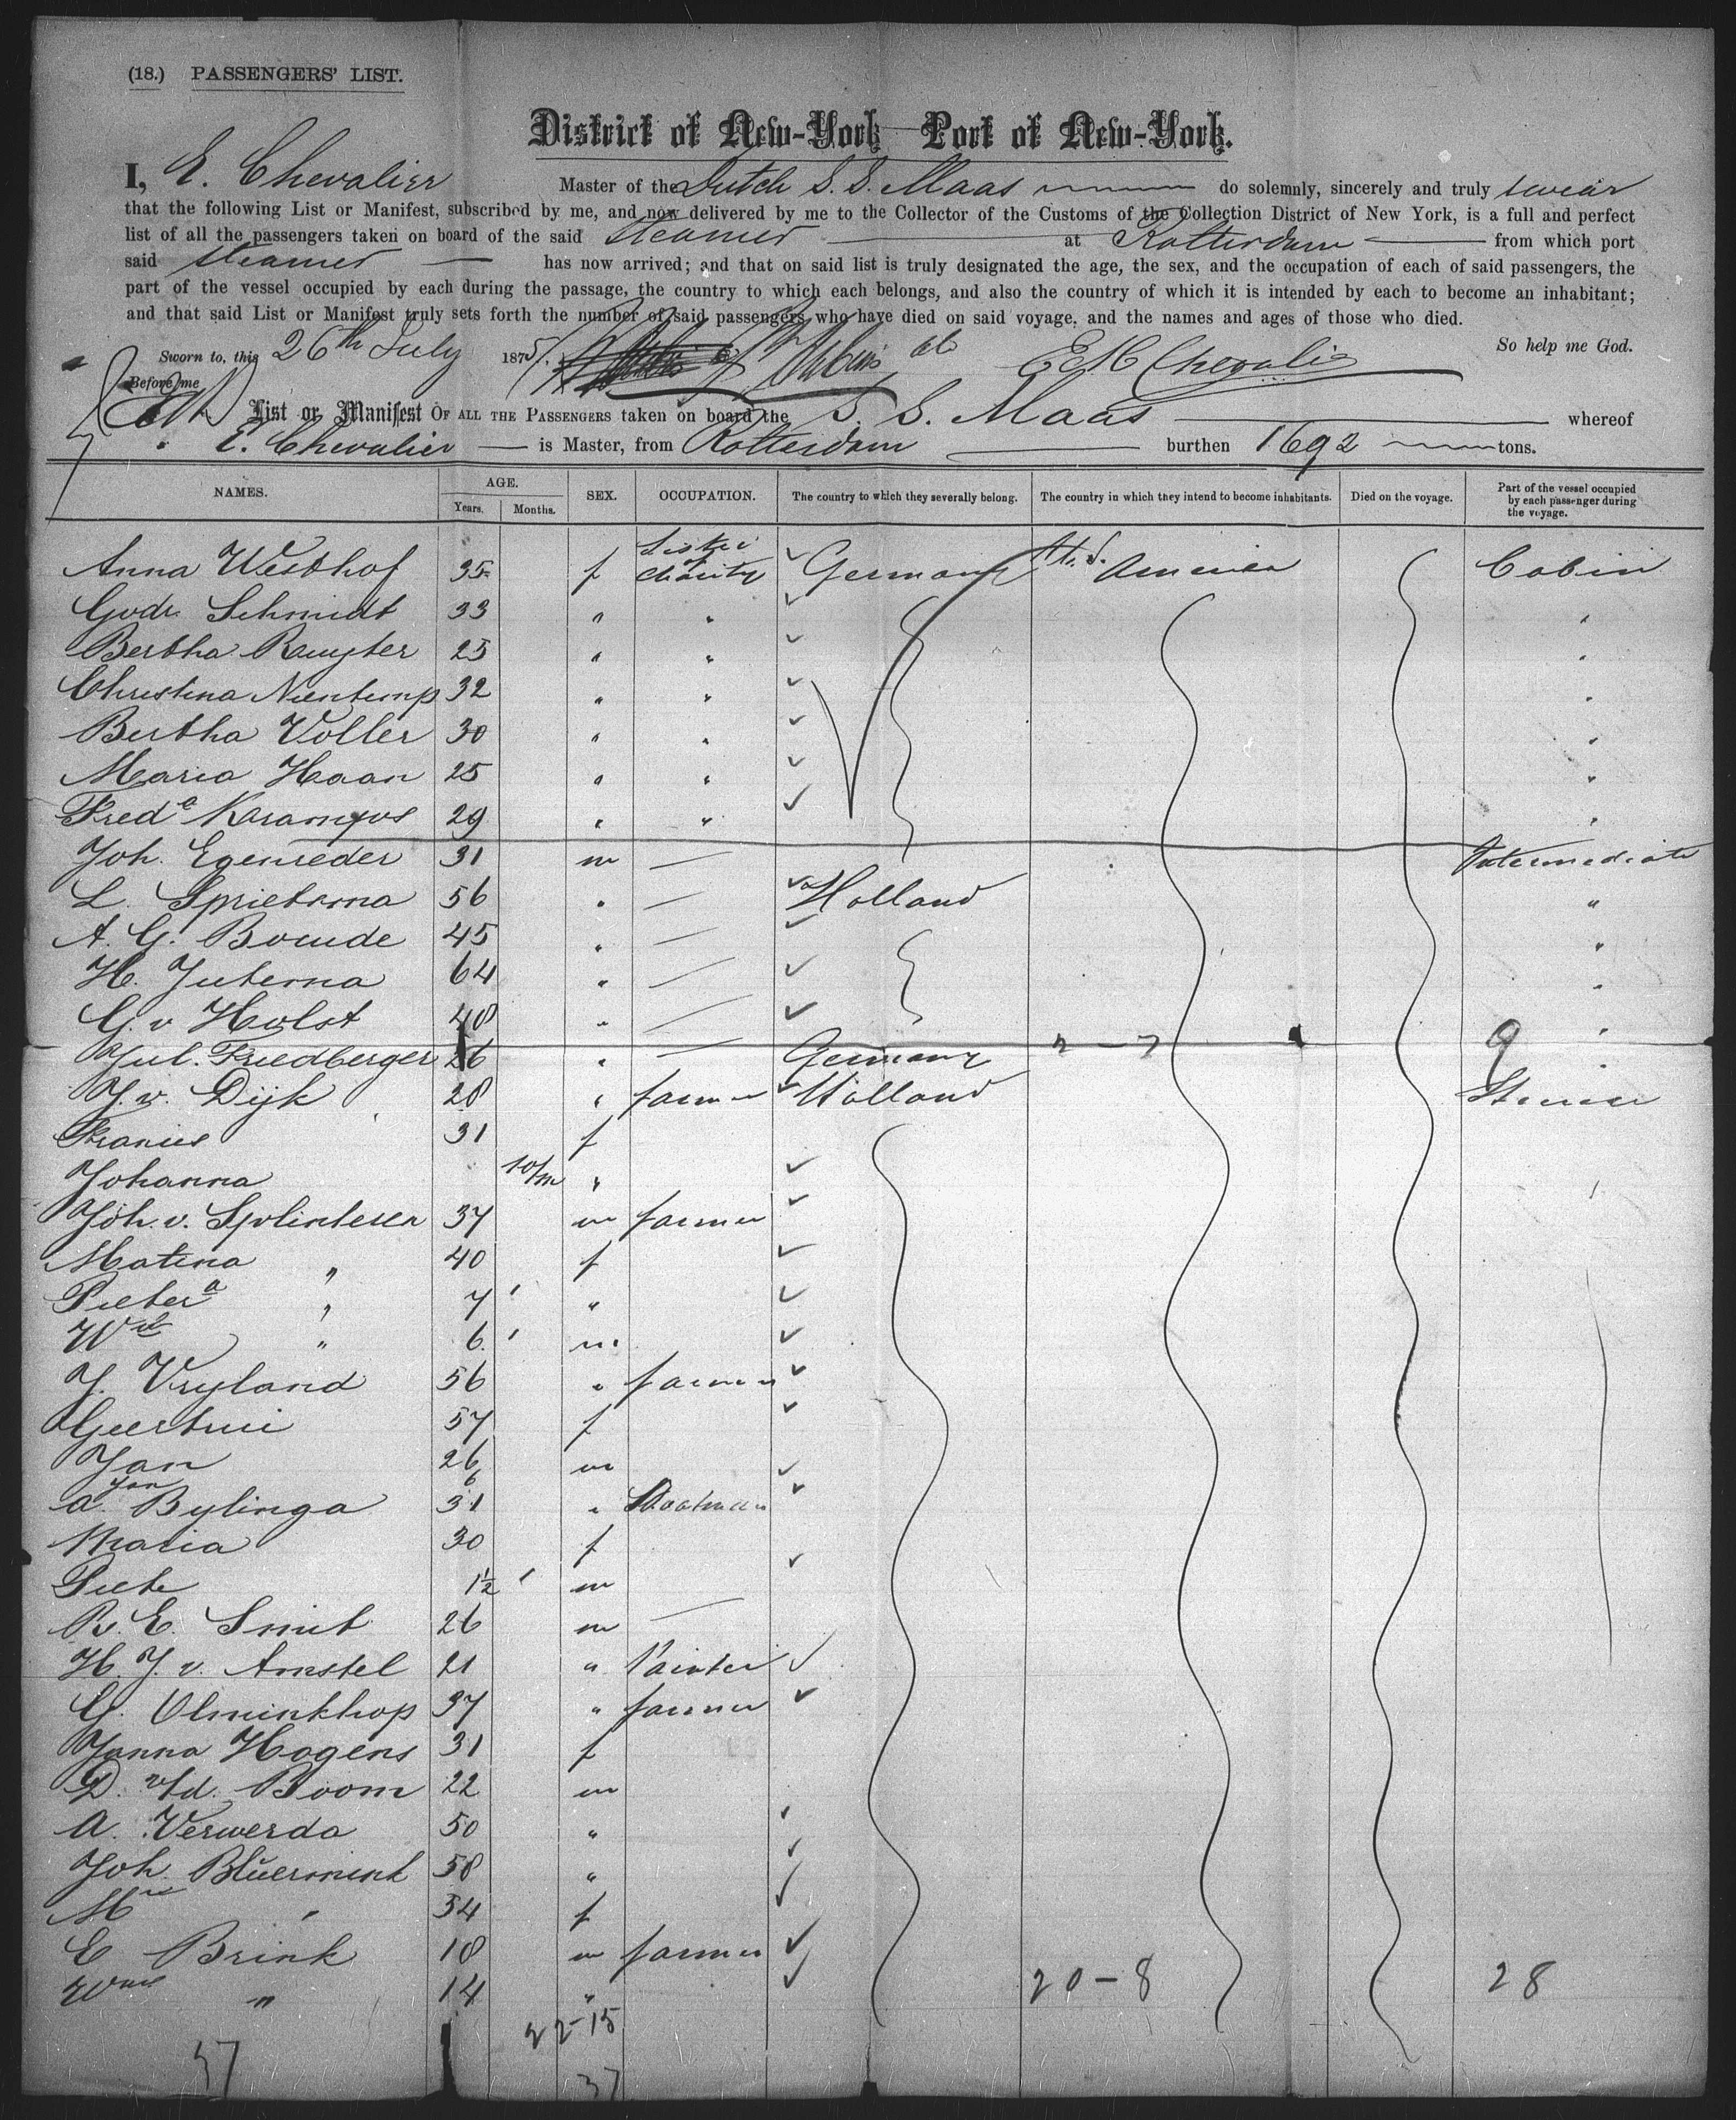 (18.) PASSENGERS' LIST.
District of New-York Port of New-York.
I, E. Chevalier Master of the Dutch S. S. Maas do solemnly, sincerely and truly swear
that the following List or Manifest, subscribed by me, and now delivered by me to the Collector of the Customs of the Collection District of New York, is a full and perfect
list of all the passengers taken on board of the said steamer at Rotterdam from which port
said steamer has now arrived; and that on said list is truly designated the age, the sex, and the occupation of each of said passengers, the
part of the vessel occupied by each during the passage, the country to which each belongs, and also the country of which it is intended by each to become an inhabitant;
and that said List or Manifest truly sets forth the number of said passengers who have died on said voyage, and the names and ages of those who died.
Sworn to, this 26th July 1875. So help me God.
Before me
List or Manifest OF ALL THE PASSENGERS taken on board the S. S. Maas whereof
E. Chevalier is Master, from Rotterdam burthen 1692 tons.
NAMES. AGE. Years. Months. SEX. OCCUPATION. The country to which they severally belong. The country in which they intend to become inhabitants. Died on the voyage. Part of the vessel occupied by each passenger during the voyage.
Anna Westhof 35 f Sister of Charity Germany U. S. America Cabin
Godr. Schmidt 33 " " "
Bertha Ruyter 25 " " "
Christina Nientimp 32 " " "
Bertha Voller 30 " " "
Maria Haan 25 " " "
Freda Karampus 29 " " "
Joh. Egenreder 31 m — Intermediate
L. Sprietsma 56 " — Holland "
A. G. Boeude 45 " — "
H. Juterna 64 " — "
G. v Holst 48 " — "
Jul. Friedberger 26 " — Germany 2 - 7 9 "
J. v. Dijk 28 " farmer Holland Steerage
Francis 31 f
Johanna 10/m "
Joh. v. Splinteren 37 m farmer
Matena " 40 f
Pietera " 7 "
Wm " 6 m
J. Vryland 56 " farmer
Geertrui 57 f
Jan 26 m
Jan 6
A. Bylinga 31 " Boatman
Maria 30 f
Piet 1½ m
R. E. Smit 26 m —
H. J. v. Amstel 21 " Painter
G. Olminkhop 37 " farmer
Janna Hagens 31 f
D. v/d. Boom 22 m
A. Verwerda 50 "
Joh. Bluermink 58 "
" 54 f
E Brink 18 m farmer
Wm " 14 " 20 - 8 28
22-15
37 37